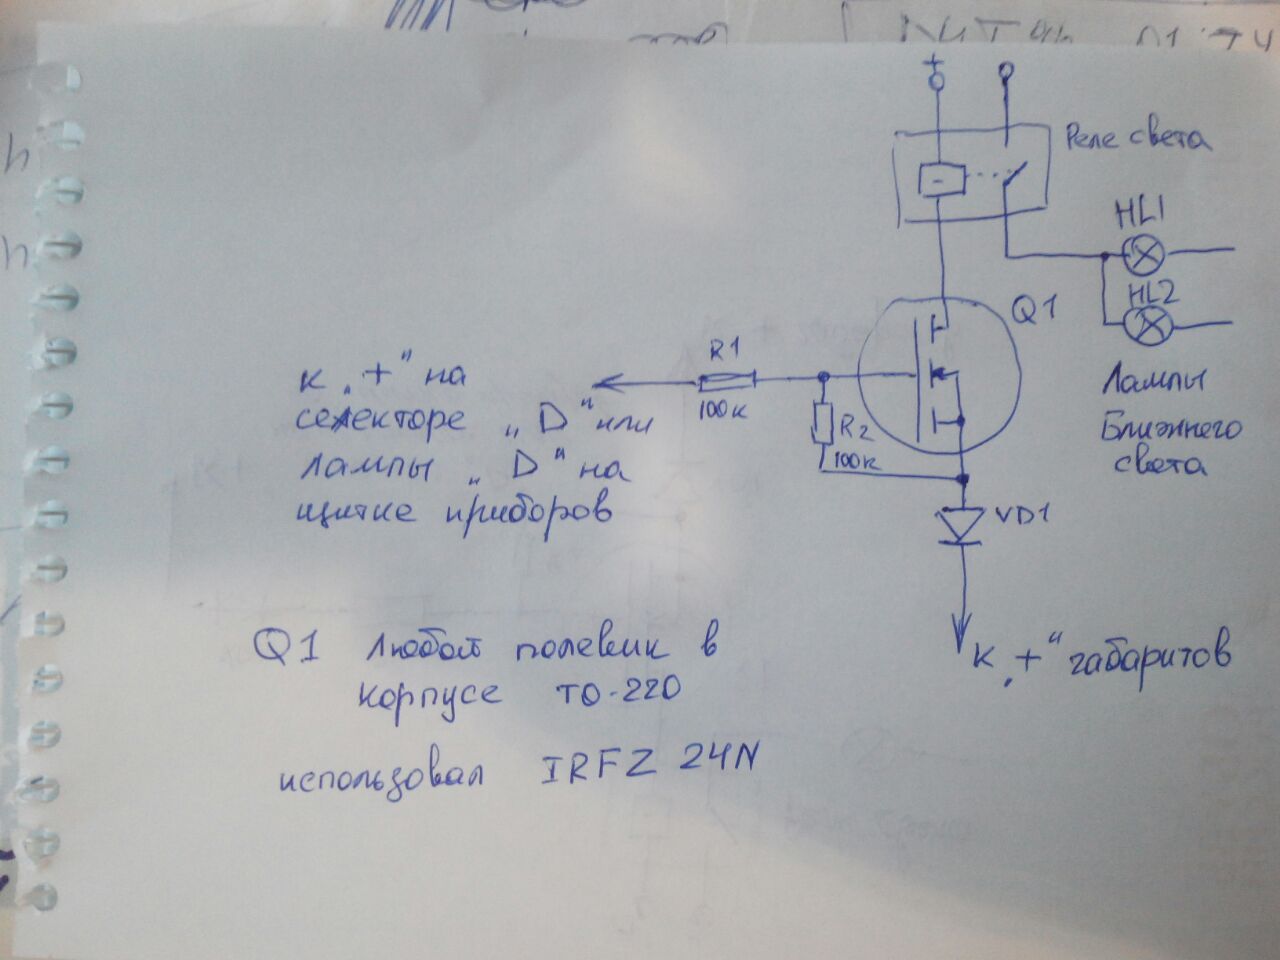 +
Реле света
HL1
HL2
Q1
R1
100к
R2
100к
к „+“ на
селекторе „D“ или
лампы „D“ на
щитке приборов
Лампы
Ближнего
света
VD1
к „+“ габаритов
Q1 Любой полевик в
корпусе ТО-220
использовал IRFZ 24N